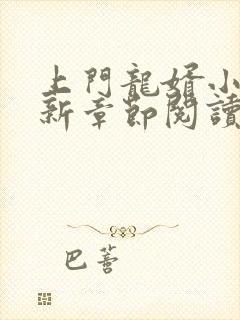 上門龍婿小
新章節閱讀
巴薈